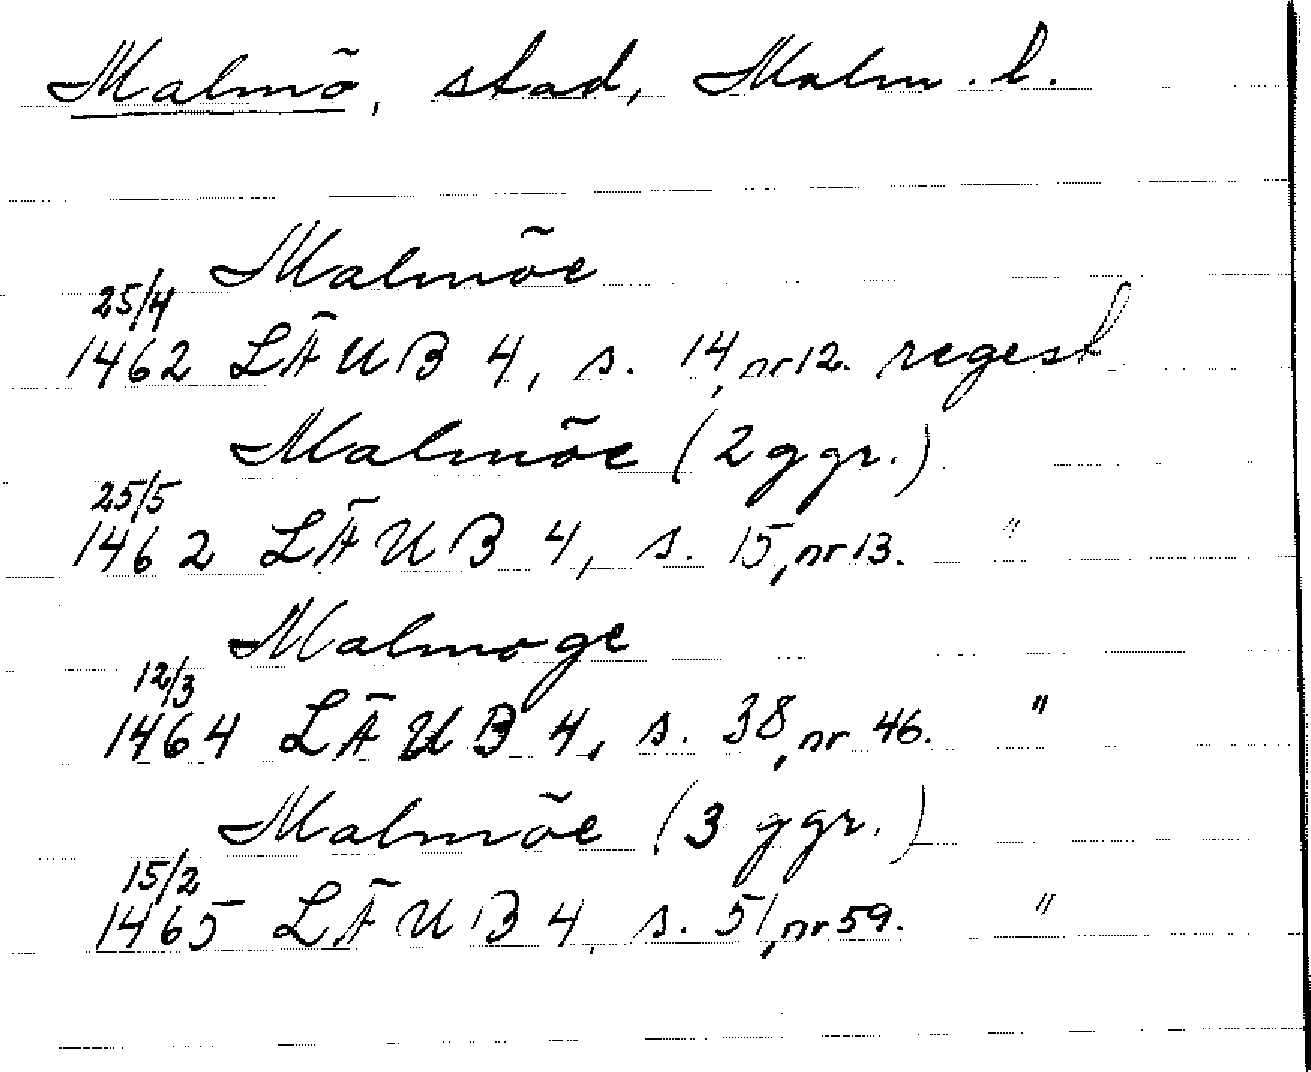 Malmö, stad, Malm. l.
Malmöe
25/4
1462 LÄUB 4, s. 14, nr 12. regest
Malmöe (2 ggr.)
25/5
1462 LÄUB 4, s. 15, nr 13. "
Malmoge
12/3
1464 LÄUB 4, s. 38, nr 46. "
Malmöe (3 ggr.)
15/2
1465 LÄUB 4, s. 51, nr 59. "